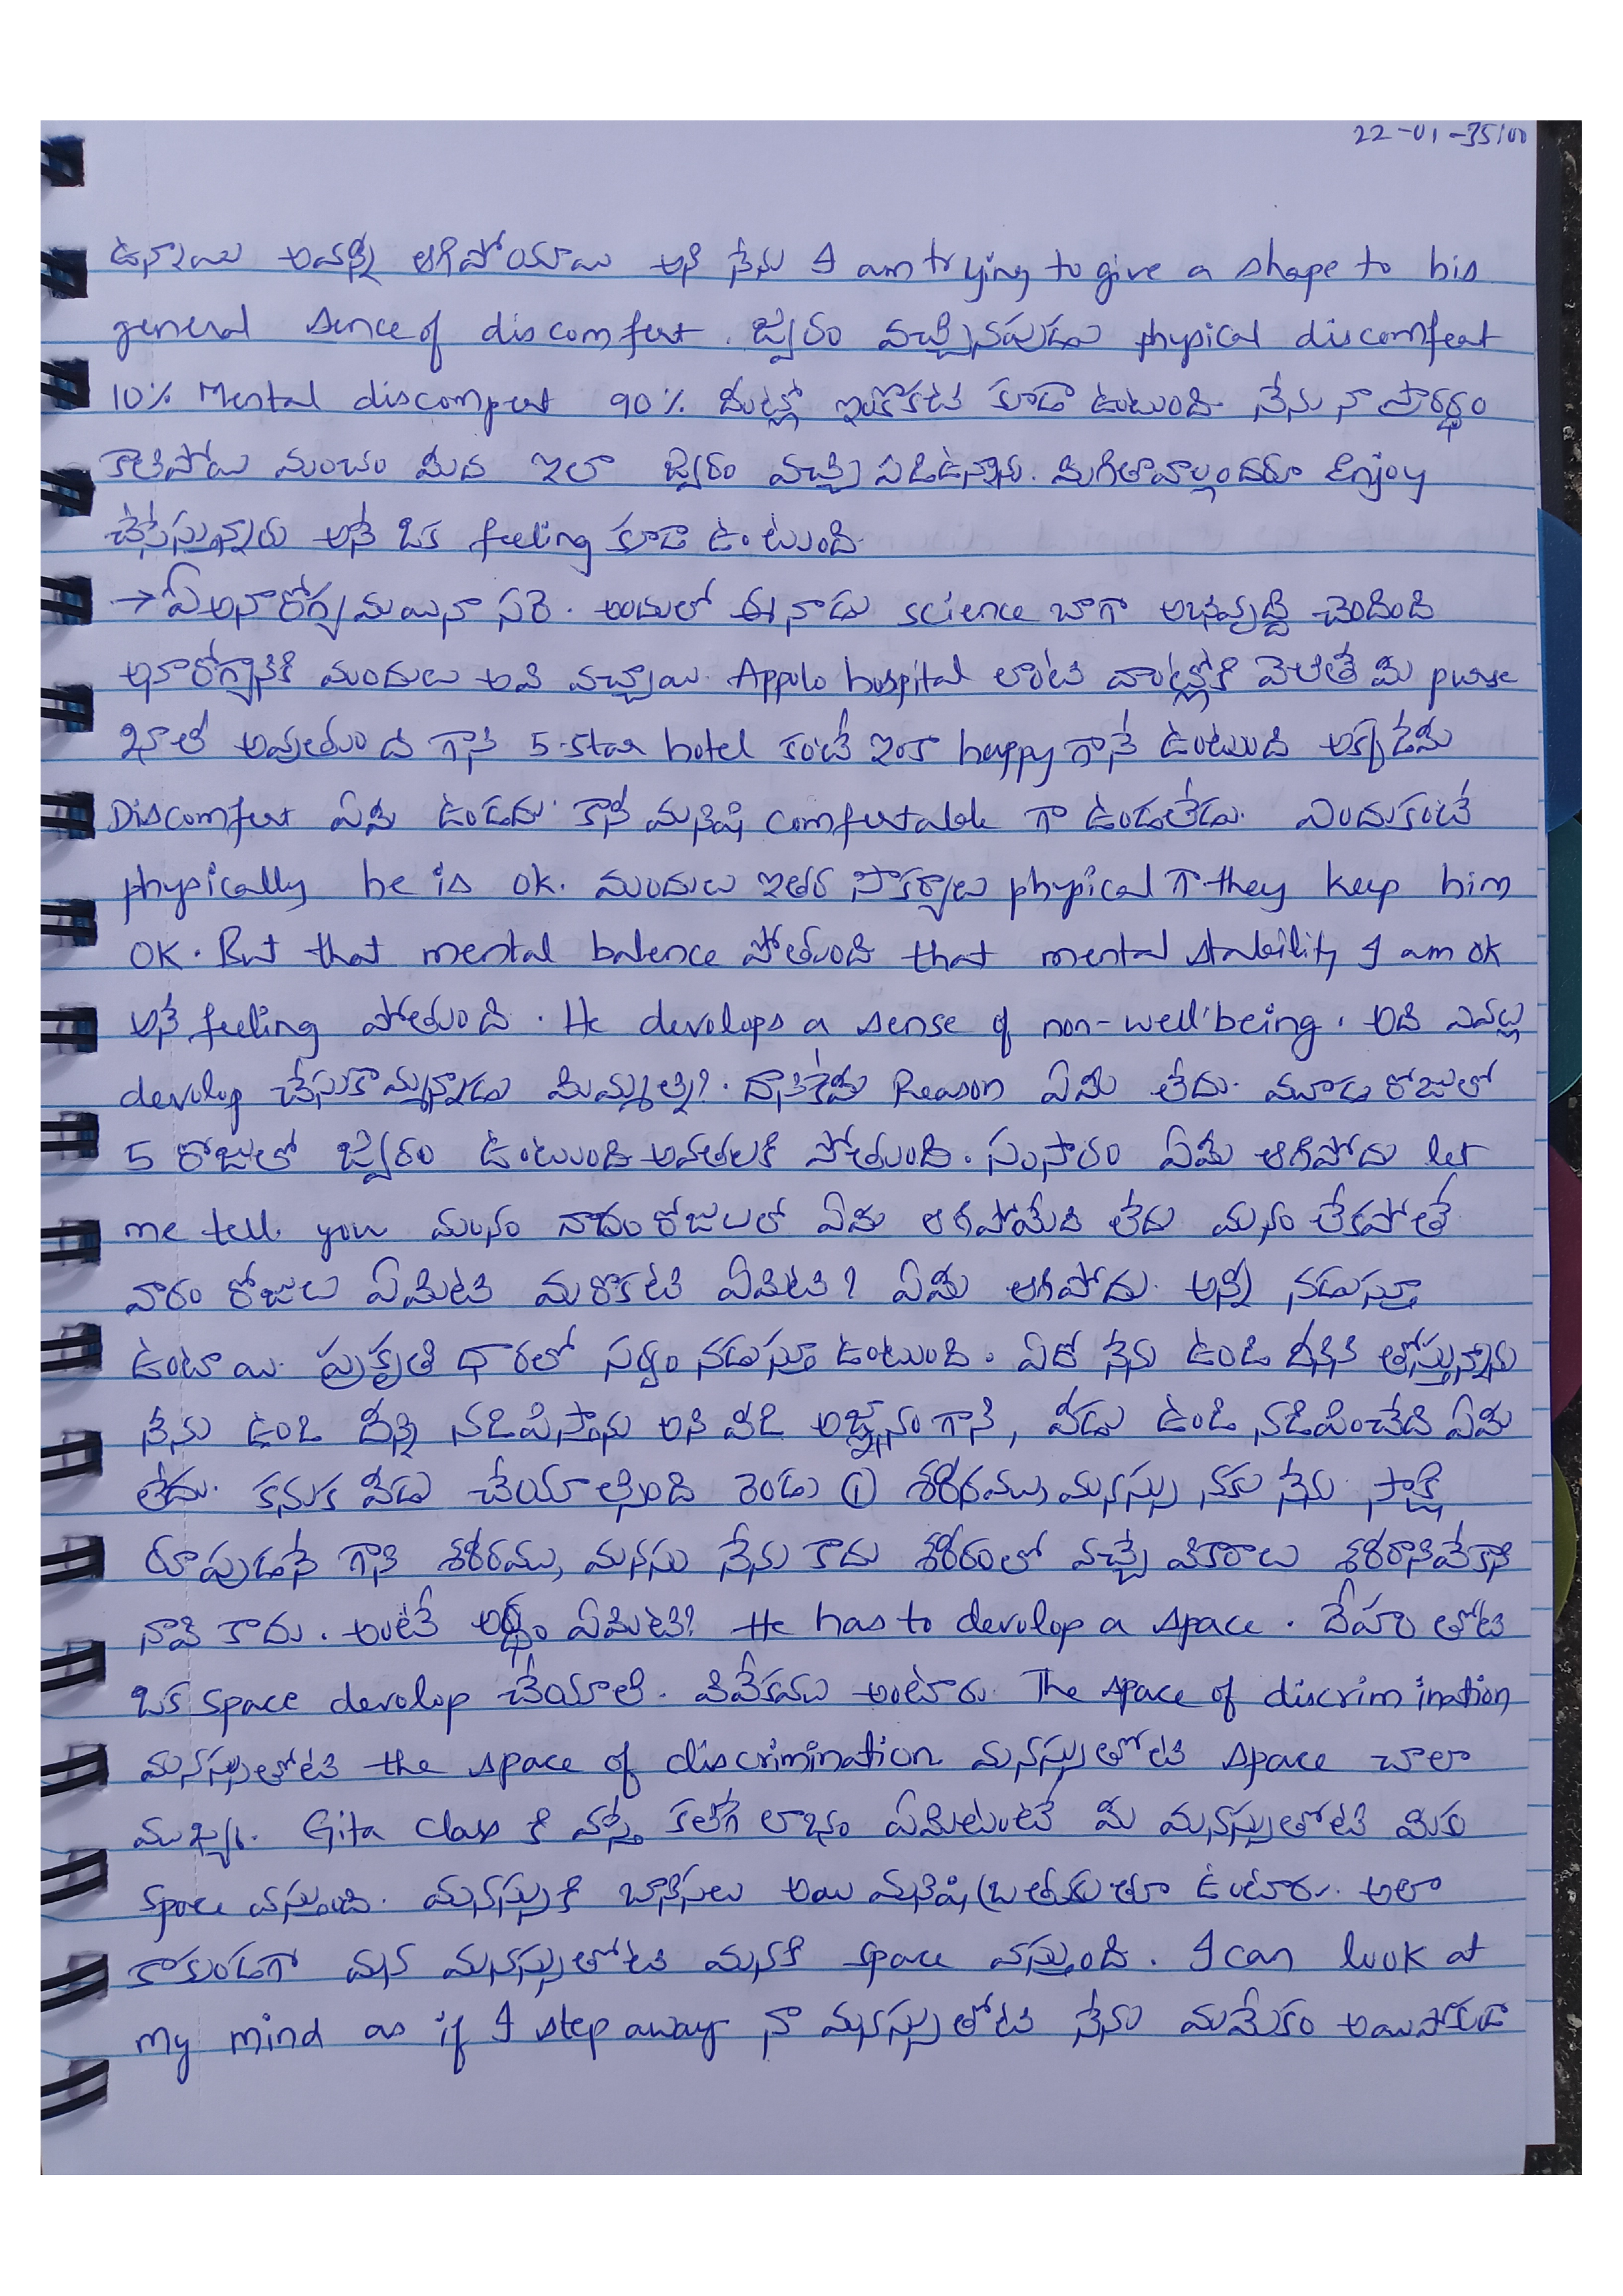 22-01-35/00
ఉన్నాయి అవన్నీ ఆగిపోయాయి అని నేను I am trying to give a shape to his
general sence of discomfert. జ్వరం వచ్చినపుడు physical discomfeat
10% Mental discompert 90% దీంట్లో ఇంకొకటి కూడా ఉంటుంది. నేను నా ప్రారబ్ధం
కాలిపోయి మంచం మీద ఇలా జ్వరం వచ్చి పడిఉన్నాను. మిగితావాళ్లందరూ Enjoy
చేసేస్తున్నారు అనే ఒక feeling కూడా ఉంటుంది.
→ ఏ అనారోగ్యమయినా సరే. అందులో ఈ నాడు science బాగా అభివృద్ధి చెందింది
అనారోగ్యానికి మందులు అవి వచ్చాయి. Appolo hospital లాంటి వాంట్లోకి వెలితే మీ purse
ఖాళీ అవుతుంది గాని 5-star hotel కంటే ఇంకా happy గానే ఉంటుంది అక్కడేమి
Discomfert ఏమి ఉండదు. కానీ మనిషి comfertable గా ఉండలేడు. ఎందుకంటే
physically he is ok. మందులు ఇతర సౌకర్యాలు physical గా they keep him
OK. But that mental balence పోతుంది that mental stability I am ok
అనే feeling పోతుంది. He devolops a sense of non-well being. అది ఎవల్ల
devolop చేసుకొమ్మన్నాడు మిమ్మల్ని?. దానికేమి Reason ఏమీ లేదు. మూడు రోజులో
5 రోజులో జ్వరం ఉంటుంది అవతలకి పోతుంది. సంసారం ఏమీ ఆగిపోదు let
me tell you మనం నాలుగు రోజులలో ఏమి ఆగిపోయేది లేదు మనం లేకపోతే
వారం రోజులు ఏమిటి మరొకటి ఏమిటి? ఏమీ ఆగిపోదు. అన్నీ నడుస్తూ
ఉంటాయి. ప్రకృతి ధారలో సర్వం నడుస్తూ ఉంటుంది. ఏదో నేను ఉండి దీనిని తోస్తున్నాను
నేను ఉండి దీన్ని నడిపిస్తాను అని వీడి అజ్ఞానం గానీ, వీడు ఉండి నడిపించేది ఏమీ
లేదు. కనుక వీడు చేయాల్సింది రెండు ① శరీరము, మనస్సు నకు నేను సాక్షి
రూపుడనే గాని శరీరము, మనసు నేను కాదు శరీరంలో వచ్చే వికారాలు శరీరానివేకాని
నావి కాదు. అంటే అర్ధం ఏమిటి? He has to devolop a space. దేహం తోటి
ఒక space devolop చేయాలి. వివేకము అంటారు. The space of discrimination
మనస్సుతోటి the space of discrimination మనస్సుతోటి space చాలా
ముఖ్యం. Gita Class కి వస్తే కలిగే లాభం ఏమిటంటే మీ మనస్సుతోటి మీకు
space వస్తుంది. మనస్సుకి బానిసలు అయి మనిషి బ్రతుకుతూ ఉంటారు. అలా
కాకుండగా మన మనస్సుతోటి మనకి space వస్తుంది. I can look at
my mind as if I step away నా మనస్సుతోటి నేను మమేకం అయిపోకుండా